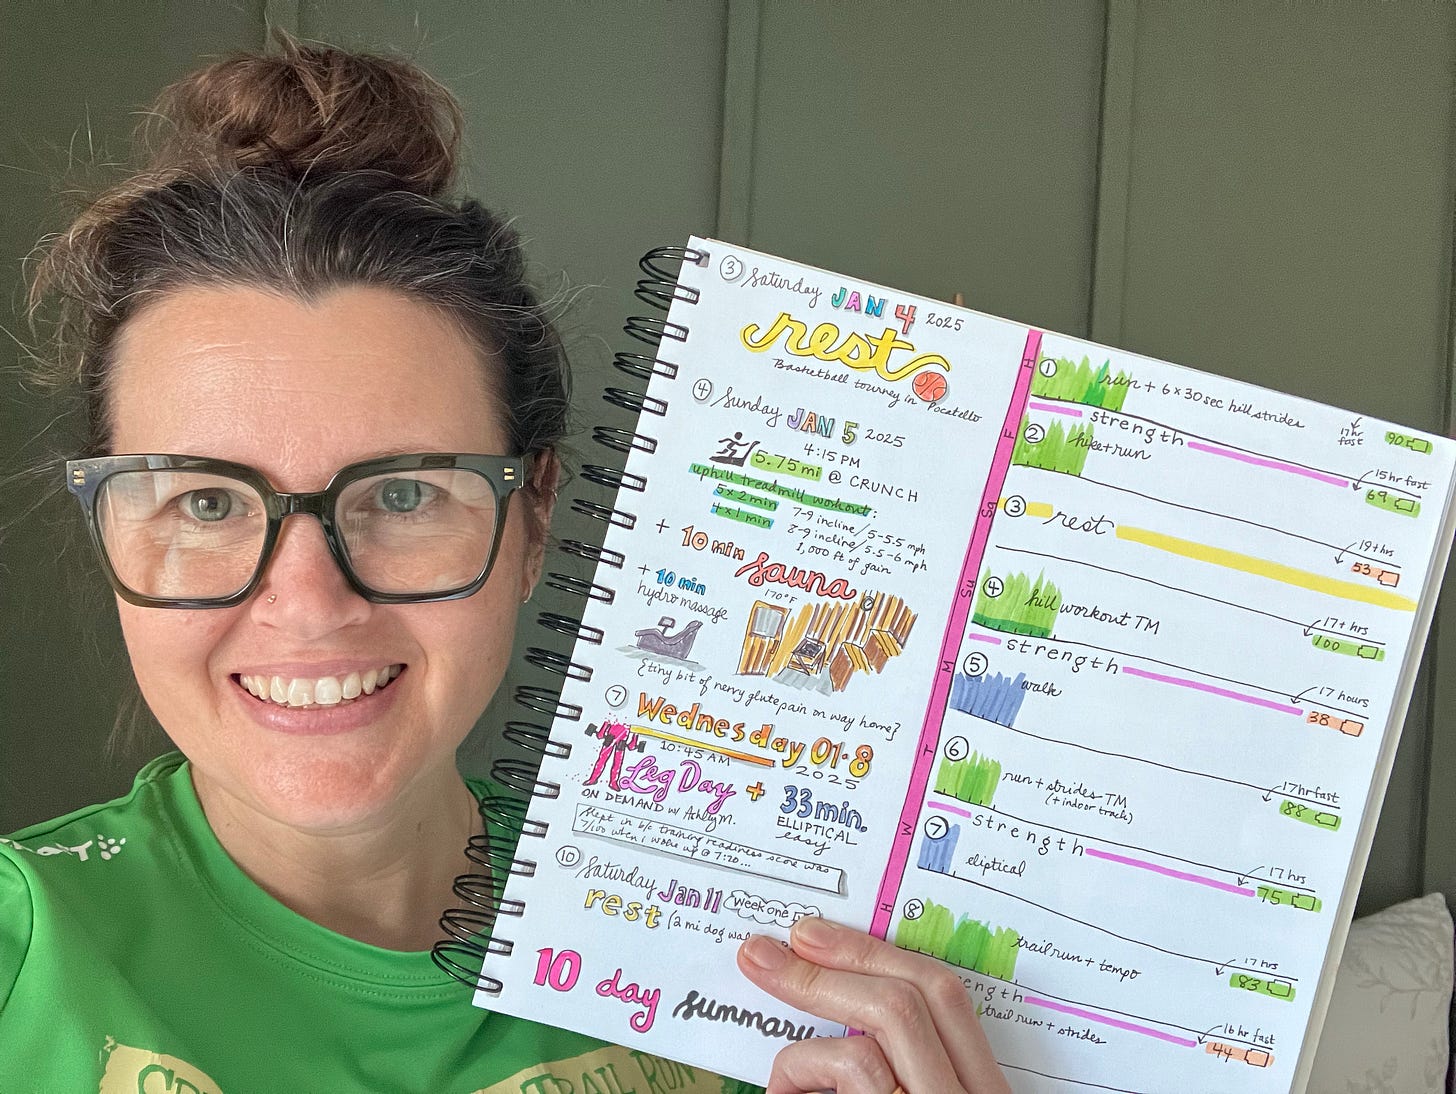 ③ Saturday JAN 4 2025
rest
Basketball tourney in Pocatello
④ Sunday JAN 5 2025
4:15 PM
5.75 mi @ CRUNCH
uphill treadmill workout:
5x2 min 7-9 incline/5-5.5 mph
4x1 min 8-9 incline/5.5-6 mph
1,000 ft of gain
+ 10 min sauna
170°F
+ 10 min
hydromassage
{tiny bit of nervy glute pain on way home}
⑦ Wednesday 01·8
10:45 AM 2025
Leg Day + 33 min.
ON DEMAND w/ Ashly M. ELLIPTICAL
easy
Slept in b/c training readiness score was
7/100 when I woke up @ 7:20...
⑩ Saturday Jan 11 Week one
rest (2 mi dog
10 day summary
H
① run + 6x30 sec hill strides
17 hr
fast
90
strength
F
② hike + run
15 hr fast
69
SA
③ rest
19+ hrs
53
SU
④ hill workout TM
17+ hrs
100
strength
M
⑤ walk
17 hours
38
T
⑥ run + strides-TM
(+ indoor track)
17 hr fast
88
strength
W
⑦ eliptical
17 hrs
75
H
⑧ trail run + tempo
17 hrs
83
ength
trail run + strides
16 hr fast
44
TRAIL RUN